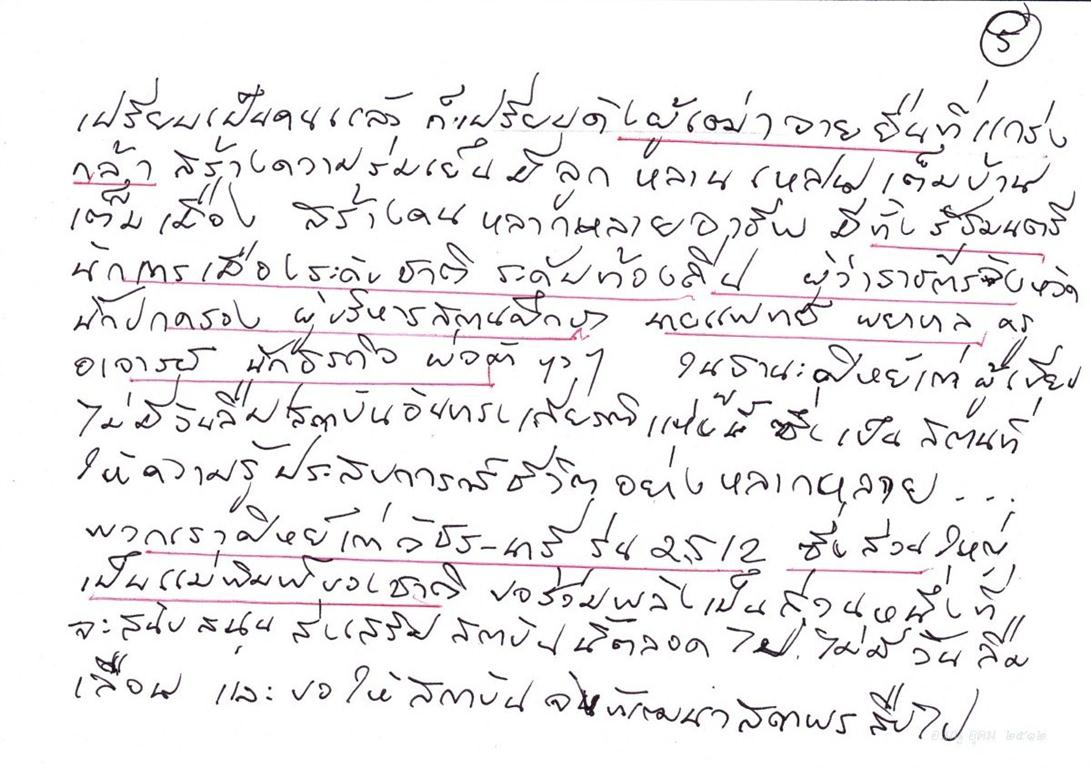 ๕
เปรียบเป็นคนแล้ว ก็เปรียบดังผู้เฒ่า อายุยืนที่แกร่ง
กล้า สร้างความร่มเย็น มีลูก หลาน เหลน เต็มบ้าน
เต็มเมือง สร้างคน หลากหลายอาชีพ มีทั้ง รัฐมนตรี
นักการเมืองระดับชาติ ระดับท้องถิ่น ผู้ว่าราชการจังหวัด
นักปกครอง ผู้บริหารสถานศึกษา นายแพทย์ พยาบาล ครู
อาจารย์ นักธุรกิจ พ่อค้า ฯลฯ ในฐานะศิษย์เก่า ผู้เขียน
ไม่มีวันลืมสถาบันอันทรงเกียรติแห่งนี้ ซึ่งเป็น สถานที่
ให้ความรู้ ประสบการณ์ชีวิต อย่างหลากหลาย ...
พวกเราศิษย์เก่า วชิร-นารี รุ่น 2512 ซึ่งส่วนใหญ่
เป็นแม่พิมพ์ของชาติ ขอร่วมพลังเป็นส่วนหนึ่งที่
จะสนับสนุน ส่งเสริม สถาบันนี้ตลอดไป ไม่มีวันลืม
เลือน และขอให้สถาบัน วัฒนาสถาพร สืบไป